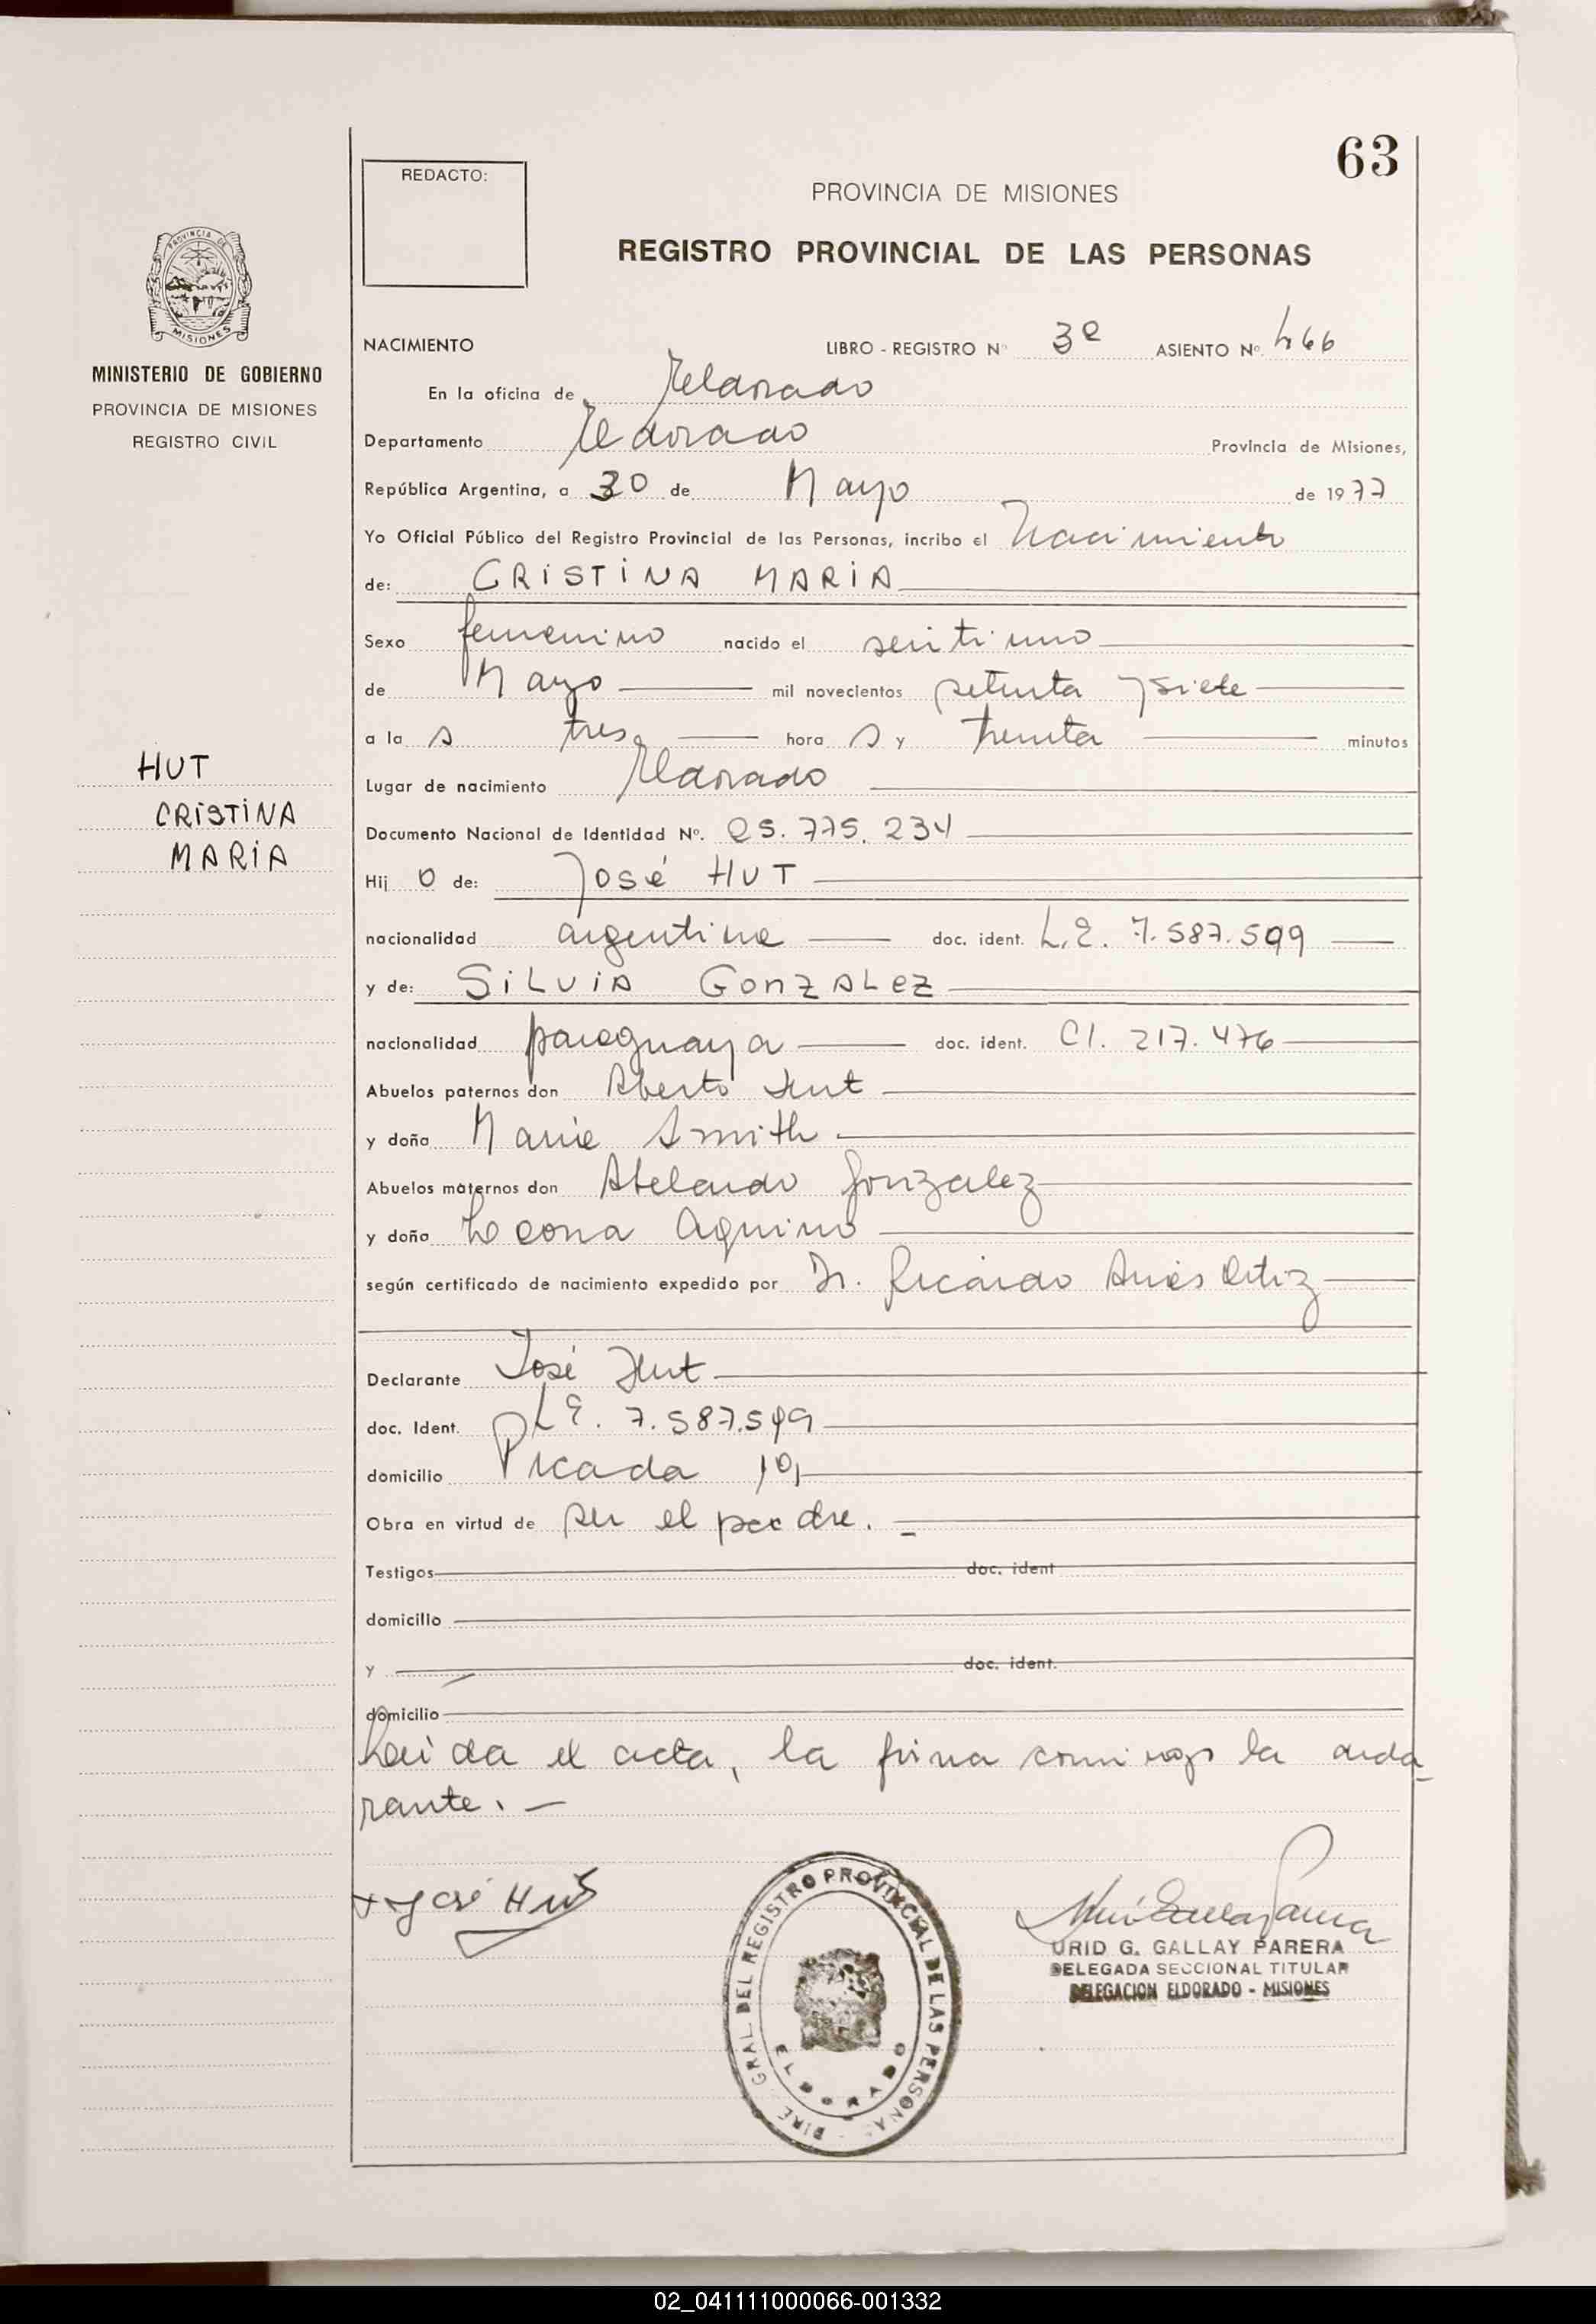 63
REDACTO:
PROVINCIA DE MISIONES
REGISTRO PROVINCIAL DE LAS PERSONAS
PROVINCIA DE
MISIONES
MINISTERIO DE GOBIERNO
PROVINCIA DE MISIONES
REGISTRO CIVIL
NACIMIENTO LIBRO - REGISTRO Nº 3º ASIENTO Nº 466
En la oficina de Eldorado
Departamento Eldorado Provincia de Misiones,
República Argentina, a 30 de Mayo de 1977
Yo Oficial Público del Registro Provincial de las Personas, incribo el Nacimiento
de: CRISTINA MARIA
Sexo femenino nacido el veintiuno
de Mayo mil novecientos setenta y siete
a la s tres hora s y treinta minutos
Lugar de nacimiento Eldorado
Documento Nacional de Identidad Nº. 25.775.234
HUT
CRISTINA
MARIA
Hij o de: José HUT
nacionalidad argentina doc. ident. L.E. 7.587.599
y de: SILVIA GONZALEZ
nacionalidad paraguaya doc. ident. CI. 217.476
Abuelos paternos don Alberto Hut
y doña Maria Smith
Abuelos maternos don Abelardo Gonzalez
y doña Leona Aquino
según certificado de nacimiento expedido por Dr. Ricardo Ortiz
Declarante José Hut
doc. Ident. LE. 7.587.599
domicilio Picada 101
Obra en virtud de ser el padre.
Testigos doc. ident
domicilio
y doc. ident.
domicilio
Leida el acta, la firma conmigo la decla-
rante. -
x José Hut
DIRE GRAL. DEL REGISTRO PROVINCIAL DE LAS PERSONAS
ELDORADO
URID G. GALLAY PARERA
DELEGADA SECCIONAL TITULAR
DELEGACION ELDORADO - MISIONES
02_041111000066-001332